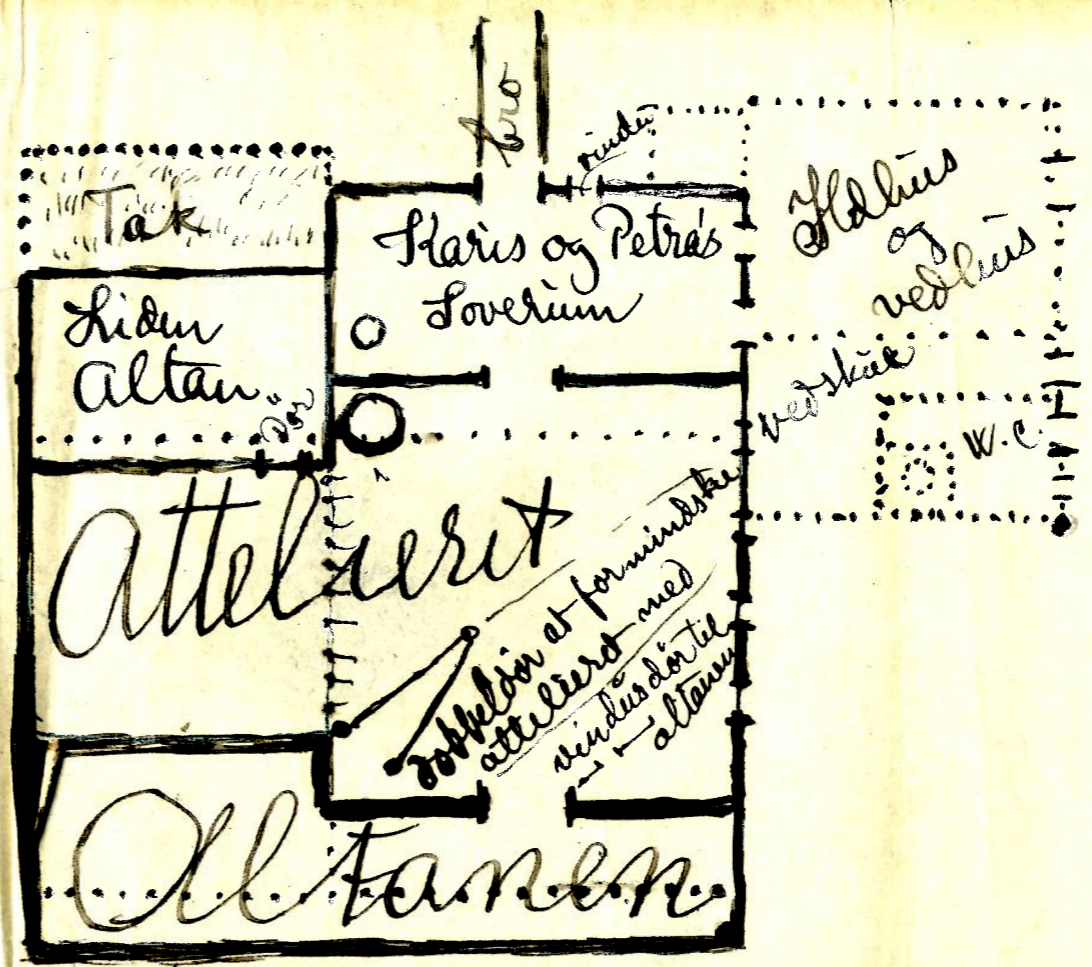 bro
vindu
Tak
Karis og Petrás
Soverium
Ildhus
og
vedhus
Liden
Altan
dör
vedskur
W.C.
Attelieret
doppeldör at formindske
attelieret med
vindusdör til
altanen
Altanen